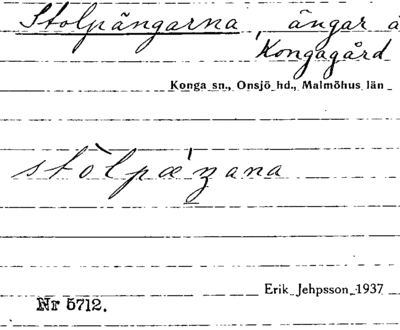 Stolpängarna, ängar å
Kongagård
Konga sn., Onsjö hd., Malmöhus län
stòlpæ'ŋana
Erik Jehpsson 1937
Nr 5712.